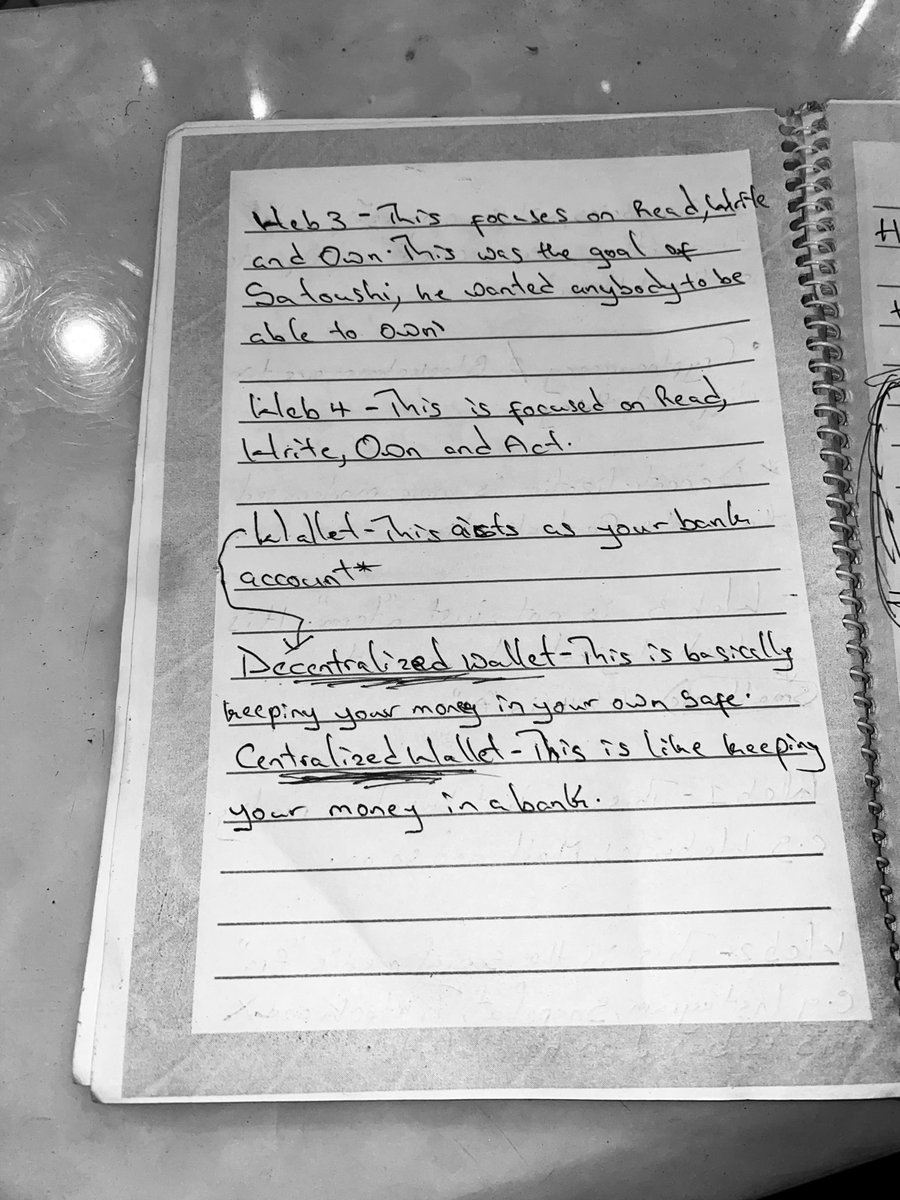 Web 3 - This focuses on Read, Write
and Own. This was the goal of
Satoushi, he wanted anybody to be
able to own
Web 4 - This is focused on Read,
Write, Own and Act.
Wallet - This acts as your bank
account*
Decentralized wallet - This is basically
keeping your money in your own safe.
Centralized Wallet - This is like keeping
your money in a bank.
H
t